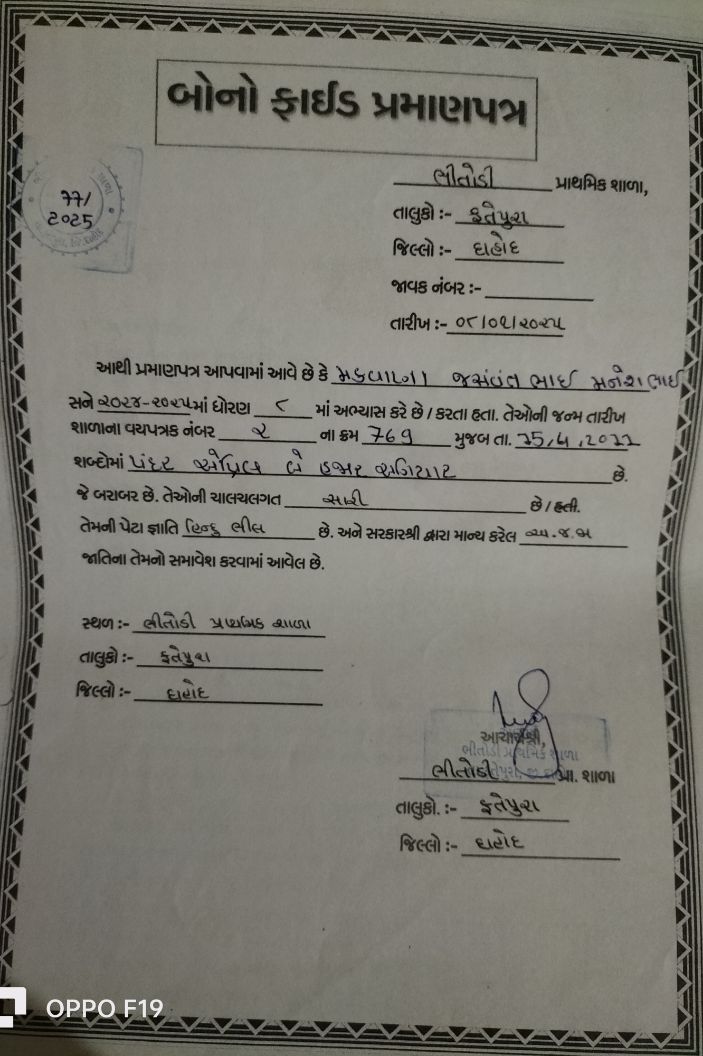 બોનો ફાઈડ પ્રમાણપત્ર
77/
2025
ભીતોડી પ્રાથમિક શાળા,
તાલુકો :- ફતેપુરા
જિલ્લો :- દાહોદ
જાવક નંબર :-
તારીખ :- ૦૮/૦૧/૨૦૨૫
આથી પ્રમાણપત્ર આપવામાં આવે છે કે મકવાણા જસવંત ભાઈ મનેશ ભાઈ
સને ૨૦૨૪-૨૦૨૫માં ધોરણ ૮ માં અભ્યાસ કરે છે / કરતા હતા. તેઓની જન્મ તારીખ
શાળાના વયપત્રક નંબર ૨ ના ક્રમ 769 મુજબ તા. 15,4,2011
શબ્દોમાં પંદર એપ્રિલ બે હજાર અગિયાર છે.
જે બરાબર છે. તેઓની ચાલચલગત સારી છે / હતી.
તેમની પેટા જ્ઞાતિ હિન્દુ ભીલ છે. અને સરકારશ્રી દ્વારા માન્ય કરેલ અ.જ.જા
જાતિના તેમનો સમાવેશ કરવામાં આવેલ છે.
સ્થળ :- ભીતોડી પ્રાથમિક શાળા
તાલુકો :- ફતેપુરા
જિલ્લો :- દાહોદ
આચાર્યશ્રી,
ભીતોડી પ્રાથમિક શાળા
ભીતોડી પ્રા. શાળા
તાલુકો. :- ફતેપુરા
જિલ્લો :- દાહોદ
OPPO F19